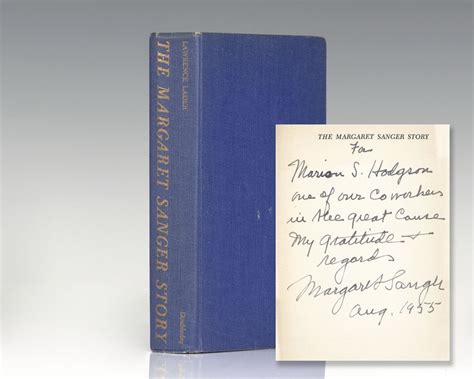 LAWRENCE LADER
THE MARGARET SANGER STORY
Doubleday
THE MARGARET SANGER STORY
For
Marion S. Hodgson
one of our Coworkers
in the great Cause
My gratitude &
regards
Margaret Sanger
Aug. 1955